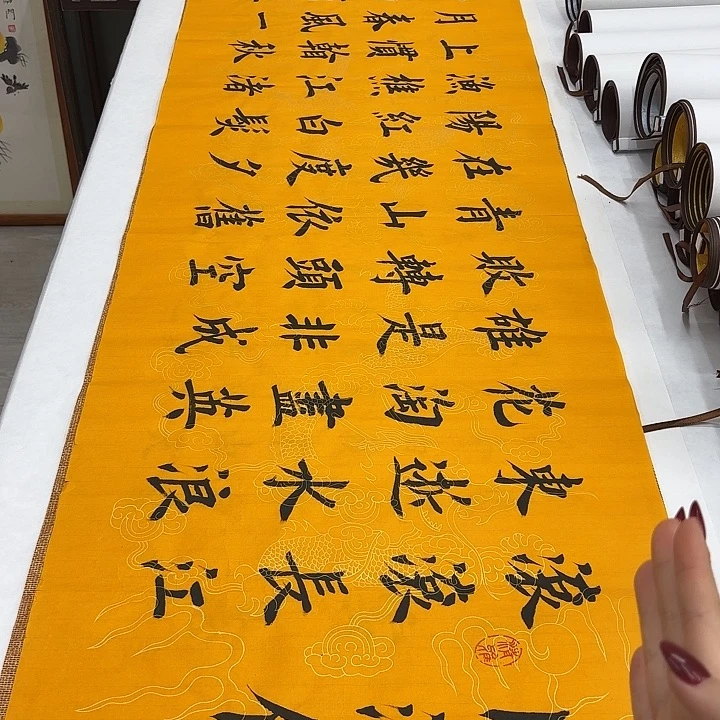 滾滾長江
東逝水浪
花淘盡英
雄是非成
敗轉頭空
青山依舊
在幾度夕
陽紅白髮
漁樵江渚
上慣秋
月春風一